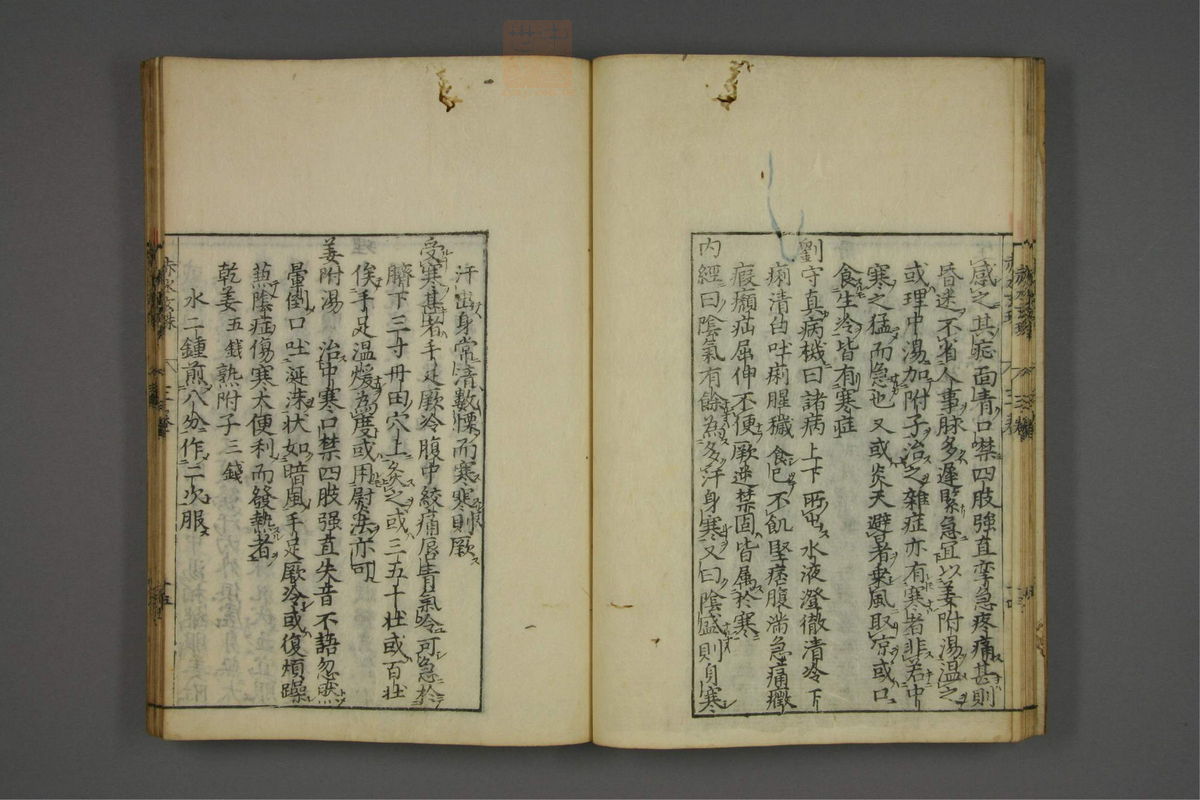 感之其症面青口禁四肢強直孿急疼痛甚則
昏迷不省人事脉多遲緊急宜以姜附湯温之
或理中湯加附子治之雜症亦有寒者非若中
寒之猛而急也又或炎天避暑乗風取凉或口
食生冷皆有寒症
劉守真病機曰諸病上下所出水液澄徹清冷下
痢清白吐痢腥穢食已不飢堅痞腹満急痛癥
瘕㿗疝屈伸不便厥逆禁固皆属於寒
内經曰陰氣有餘為多汗身寒又曰陰盛則身寒
汗出身常清數慄而寒寒則厥
受寒甚者手足厥冷腹中絞痛唇青氣冷可急於
臍下三寸丹田穴上灸之或三五十壮或百壮
俟手足温煖為度或用熨法亦可
姜附湯 治中寒口禁四肢强直失音不語忽然
暈倒口吐涎沫状如暗風手足厥冷或復煩躁
𤍠陰症傷寒大便利而發熱者
乾姜五錢 熟附子三錢
水二鍾煎八分作二次服
赤水玄珠 三卷 十五